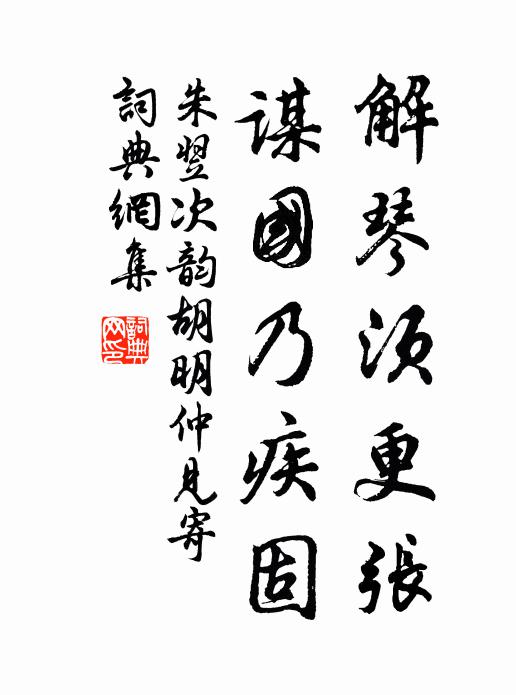 解琴須更張
謀國乃疾固
朱翌次韵胡明仲見寄
詞典網集
詞典网印